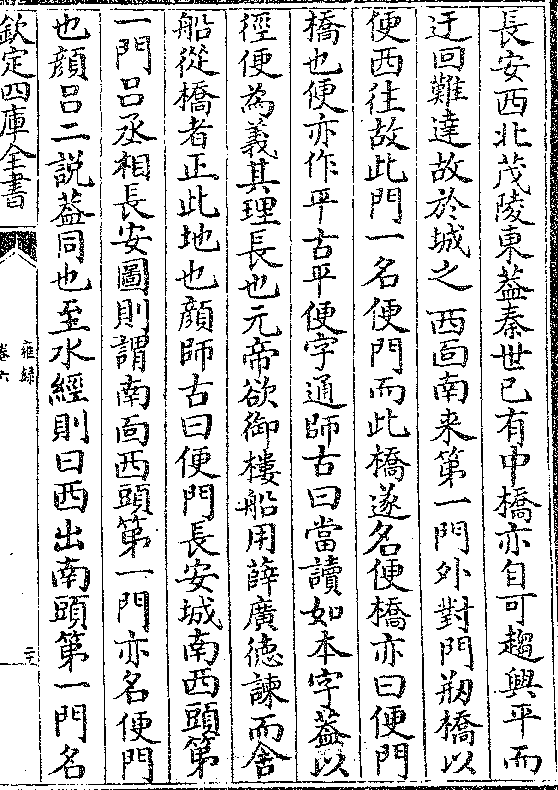 長安西北茂陵東葢秦世已有中橋亦自可趨興平而
迂回難達故於城之西面南来第一門外對門剙橋以
便西往故此門一名便門而此橋遂名便橋亦曰便門
橋也便亦作平古平便字通師古曰當讀如本字葢以
徑便為義其理長也元帝欲御樓船用薛廣徳諫而舍
船從橋者正此地也顔師古曰便門長安城南西頭第
一門吕丞相長安圖則謂南面西頭第一門亦名便門
也顔吕二説葢同也至水經則曰西出南頭第一門名
欽定四庫全書
雍録
卷六